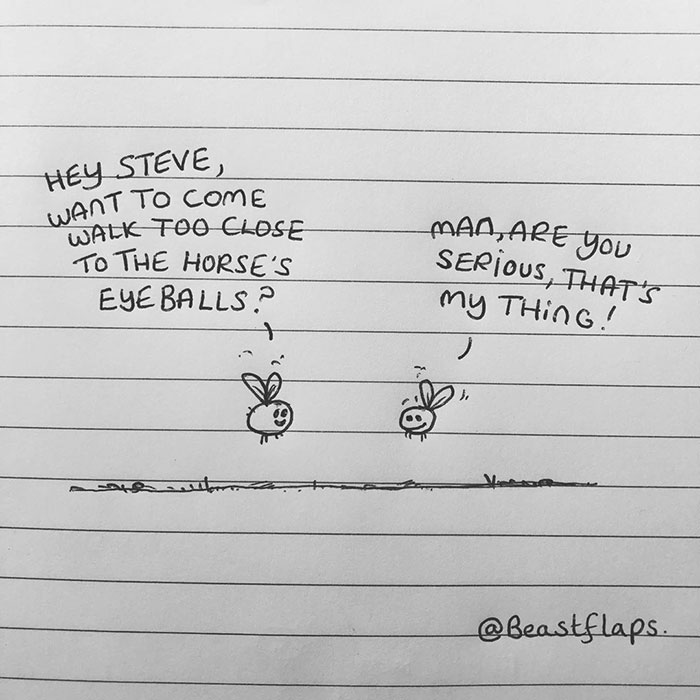 HEY STEVE,
WANT TO COME
WALK TOO CLOSE
TO THE HORSE'S
EYEBALLS?
MAN, ARE YOU
SERIOUS, THAT'S
MY THING!
@Beastflaps.